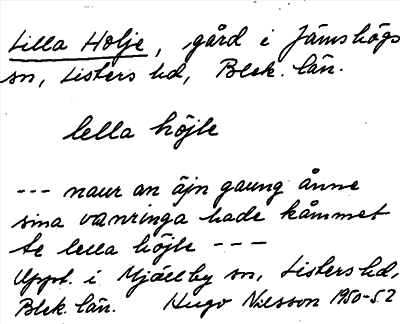 Lilla Holje, gård i Jämshögs
sn, Listers hd, Blek. län.
lella höjle
--- naur an äjn gaung ånne
sina vanringa hade kåmmet
te lella höjle ---
Uppt. i Mjällby sn, Listers hd,
Blek. län. Hugo Nilsson 1950-52